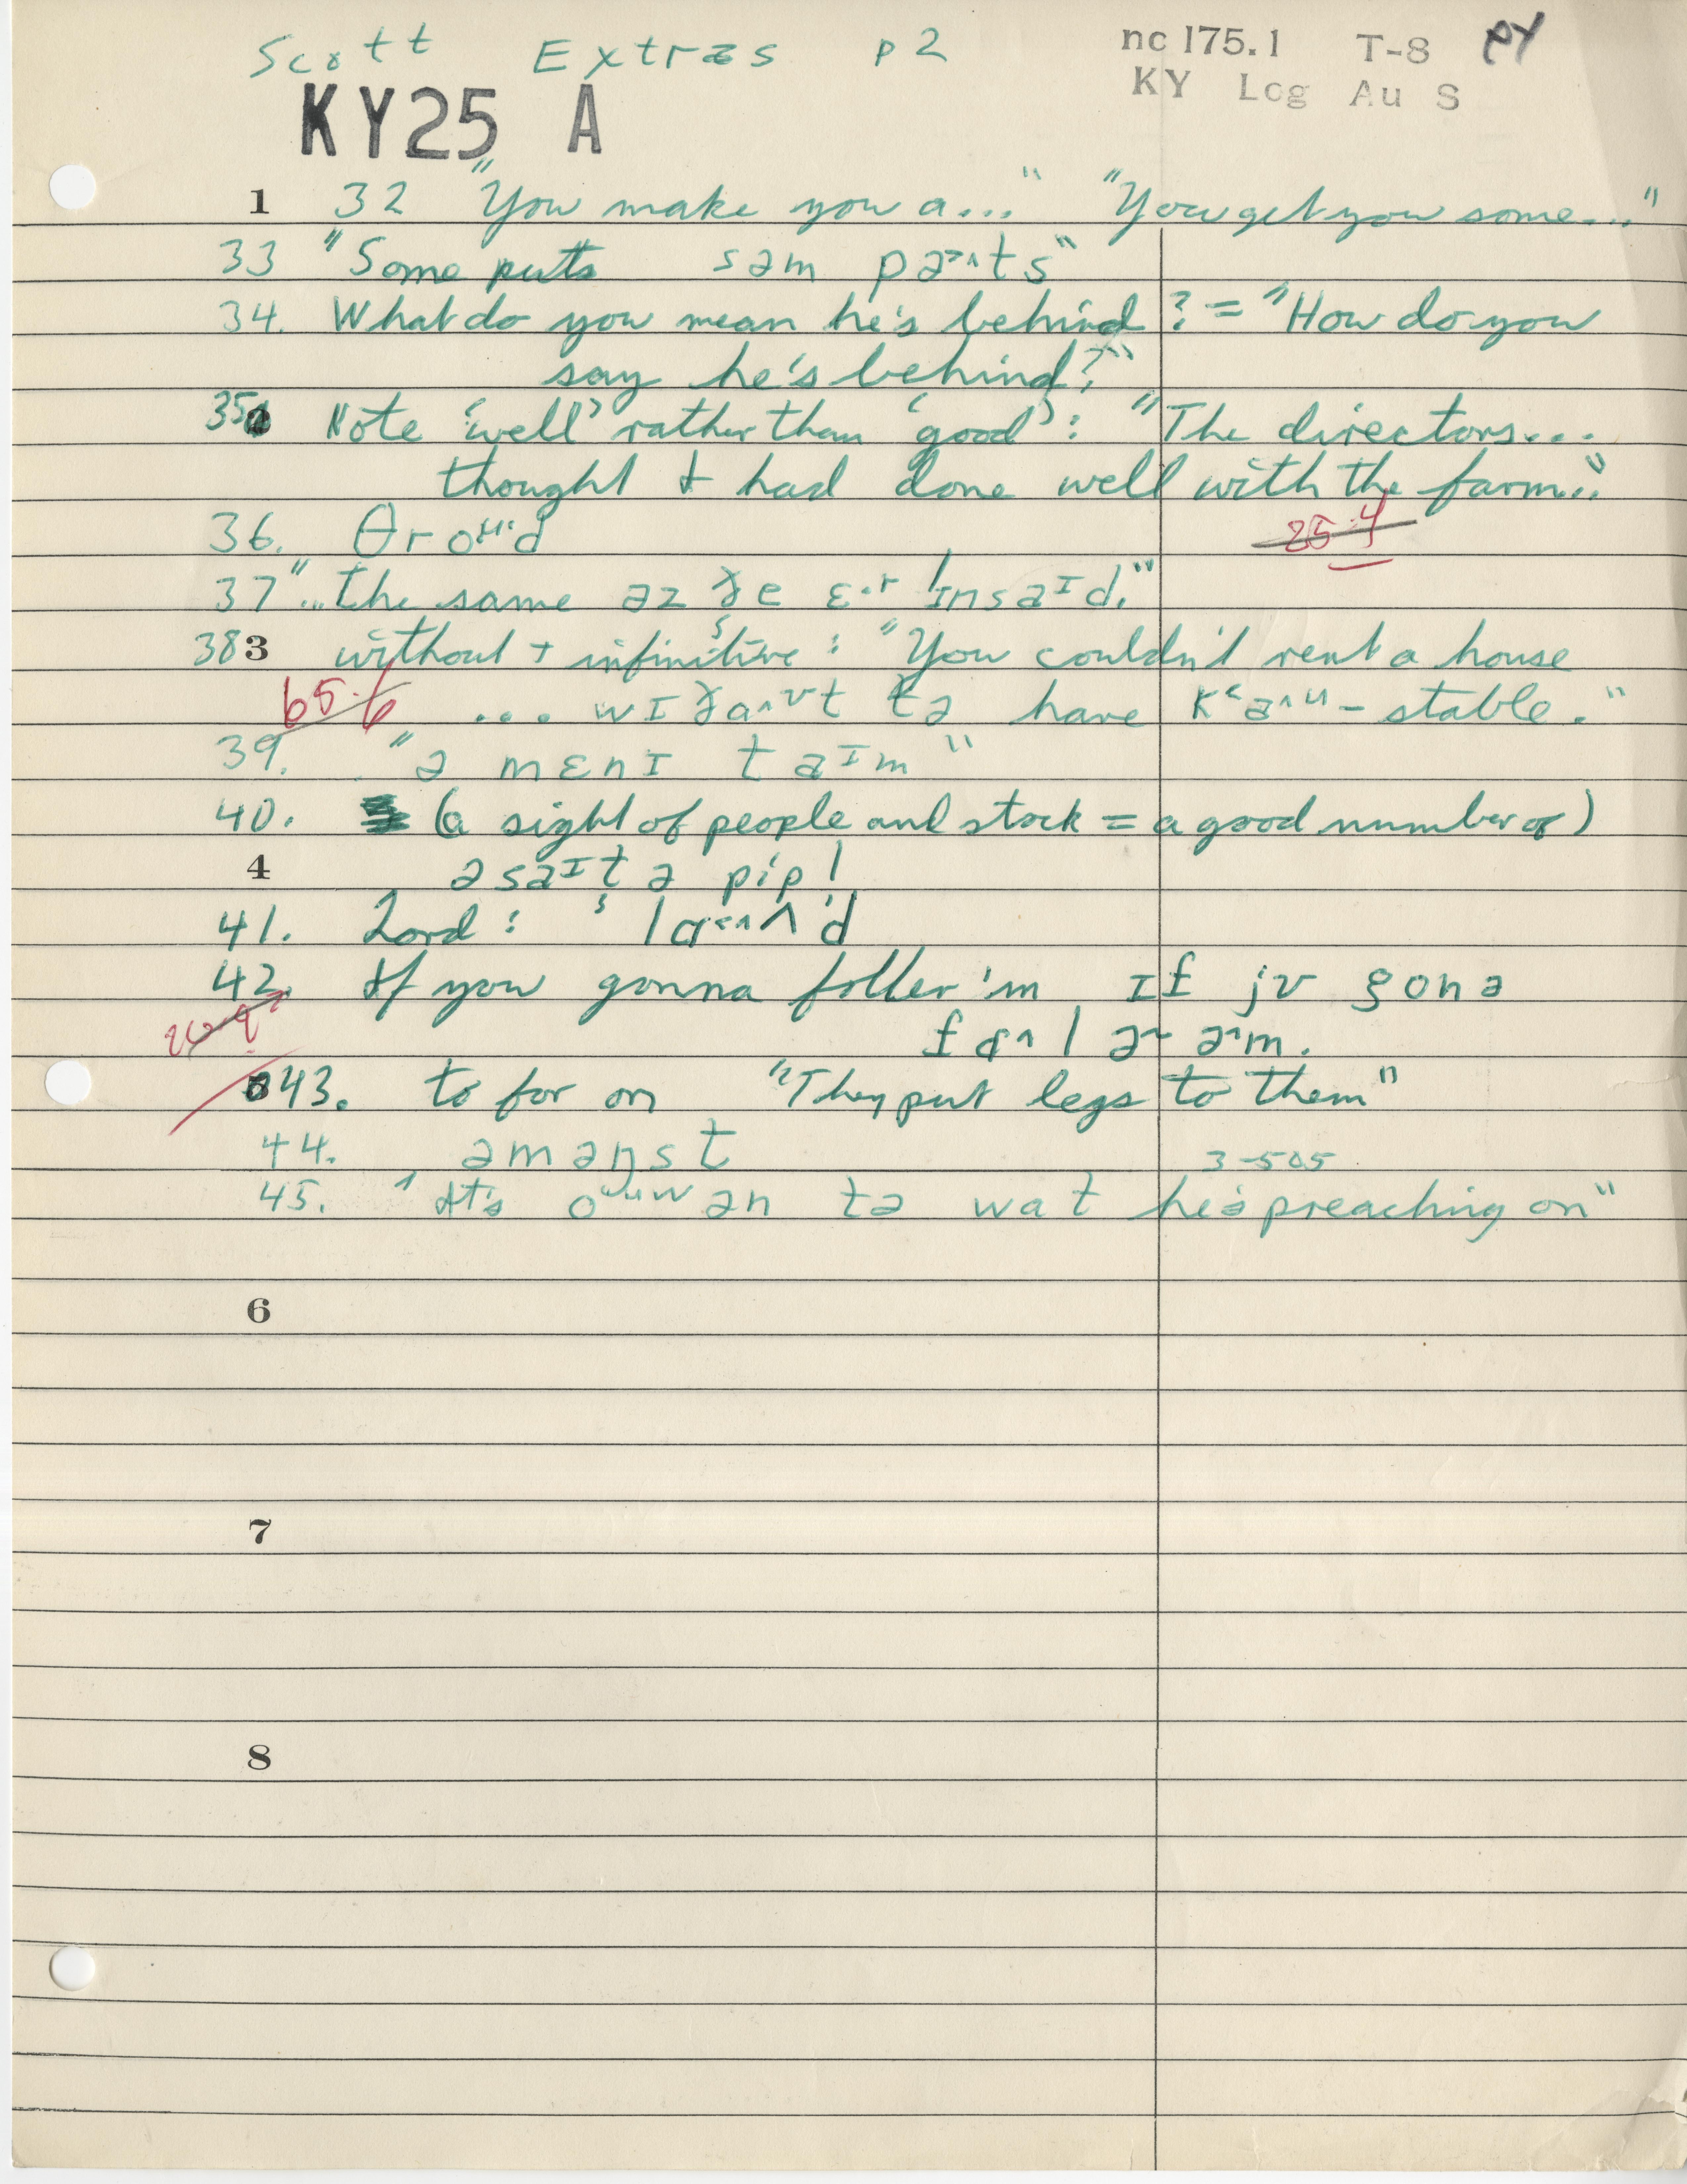 Scott Extras p 2
nc 175.1 T-8
KY Log Au S
KY25 A
1 32 "You make you a..." "You get you some..."
33 "Some puts səm pə˃˄ts"
34. What do you mean he's behind? = "How do you
say he's behind?"
35 Note 'well' rather than 'good': "The directors...
thought I had done well with the farm..."
36. θroᵘ·d
25.4
37 "...the same əz ðe ɛ·r ˈɪnsaɪd."
383 without + infinitive: "You couldn't rent a house
65.6 .... wɪðaʊt tə have stable."
39. "ə mɛnɪ taɪm"
40. (a sight of people and stock = a good number of)
4 əsaɪt ə pip!
41. Lord:
42. If you gonna foller 'm ɪf jʊ gonə
fɑ˄l ə əm.
43. to for on "They put legs to them"
44. əməŋst
3-505
45. "It's ən tə wat he's preaching on"
6
7
8